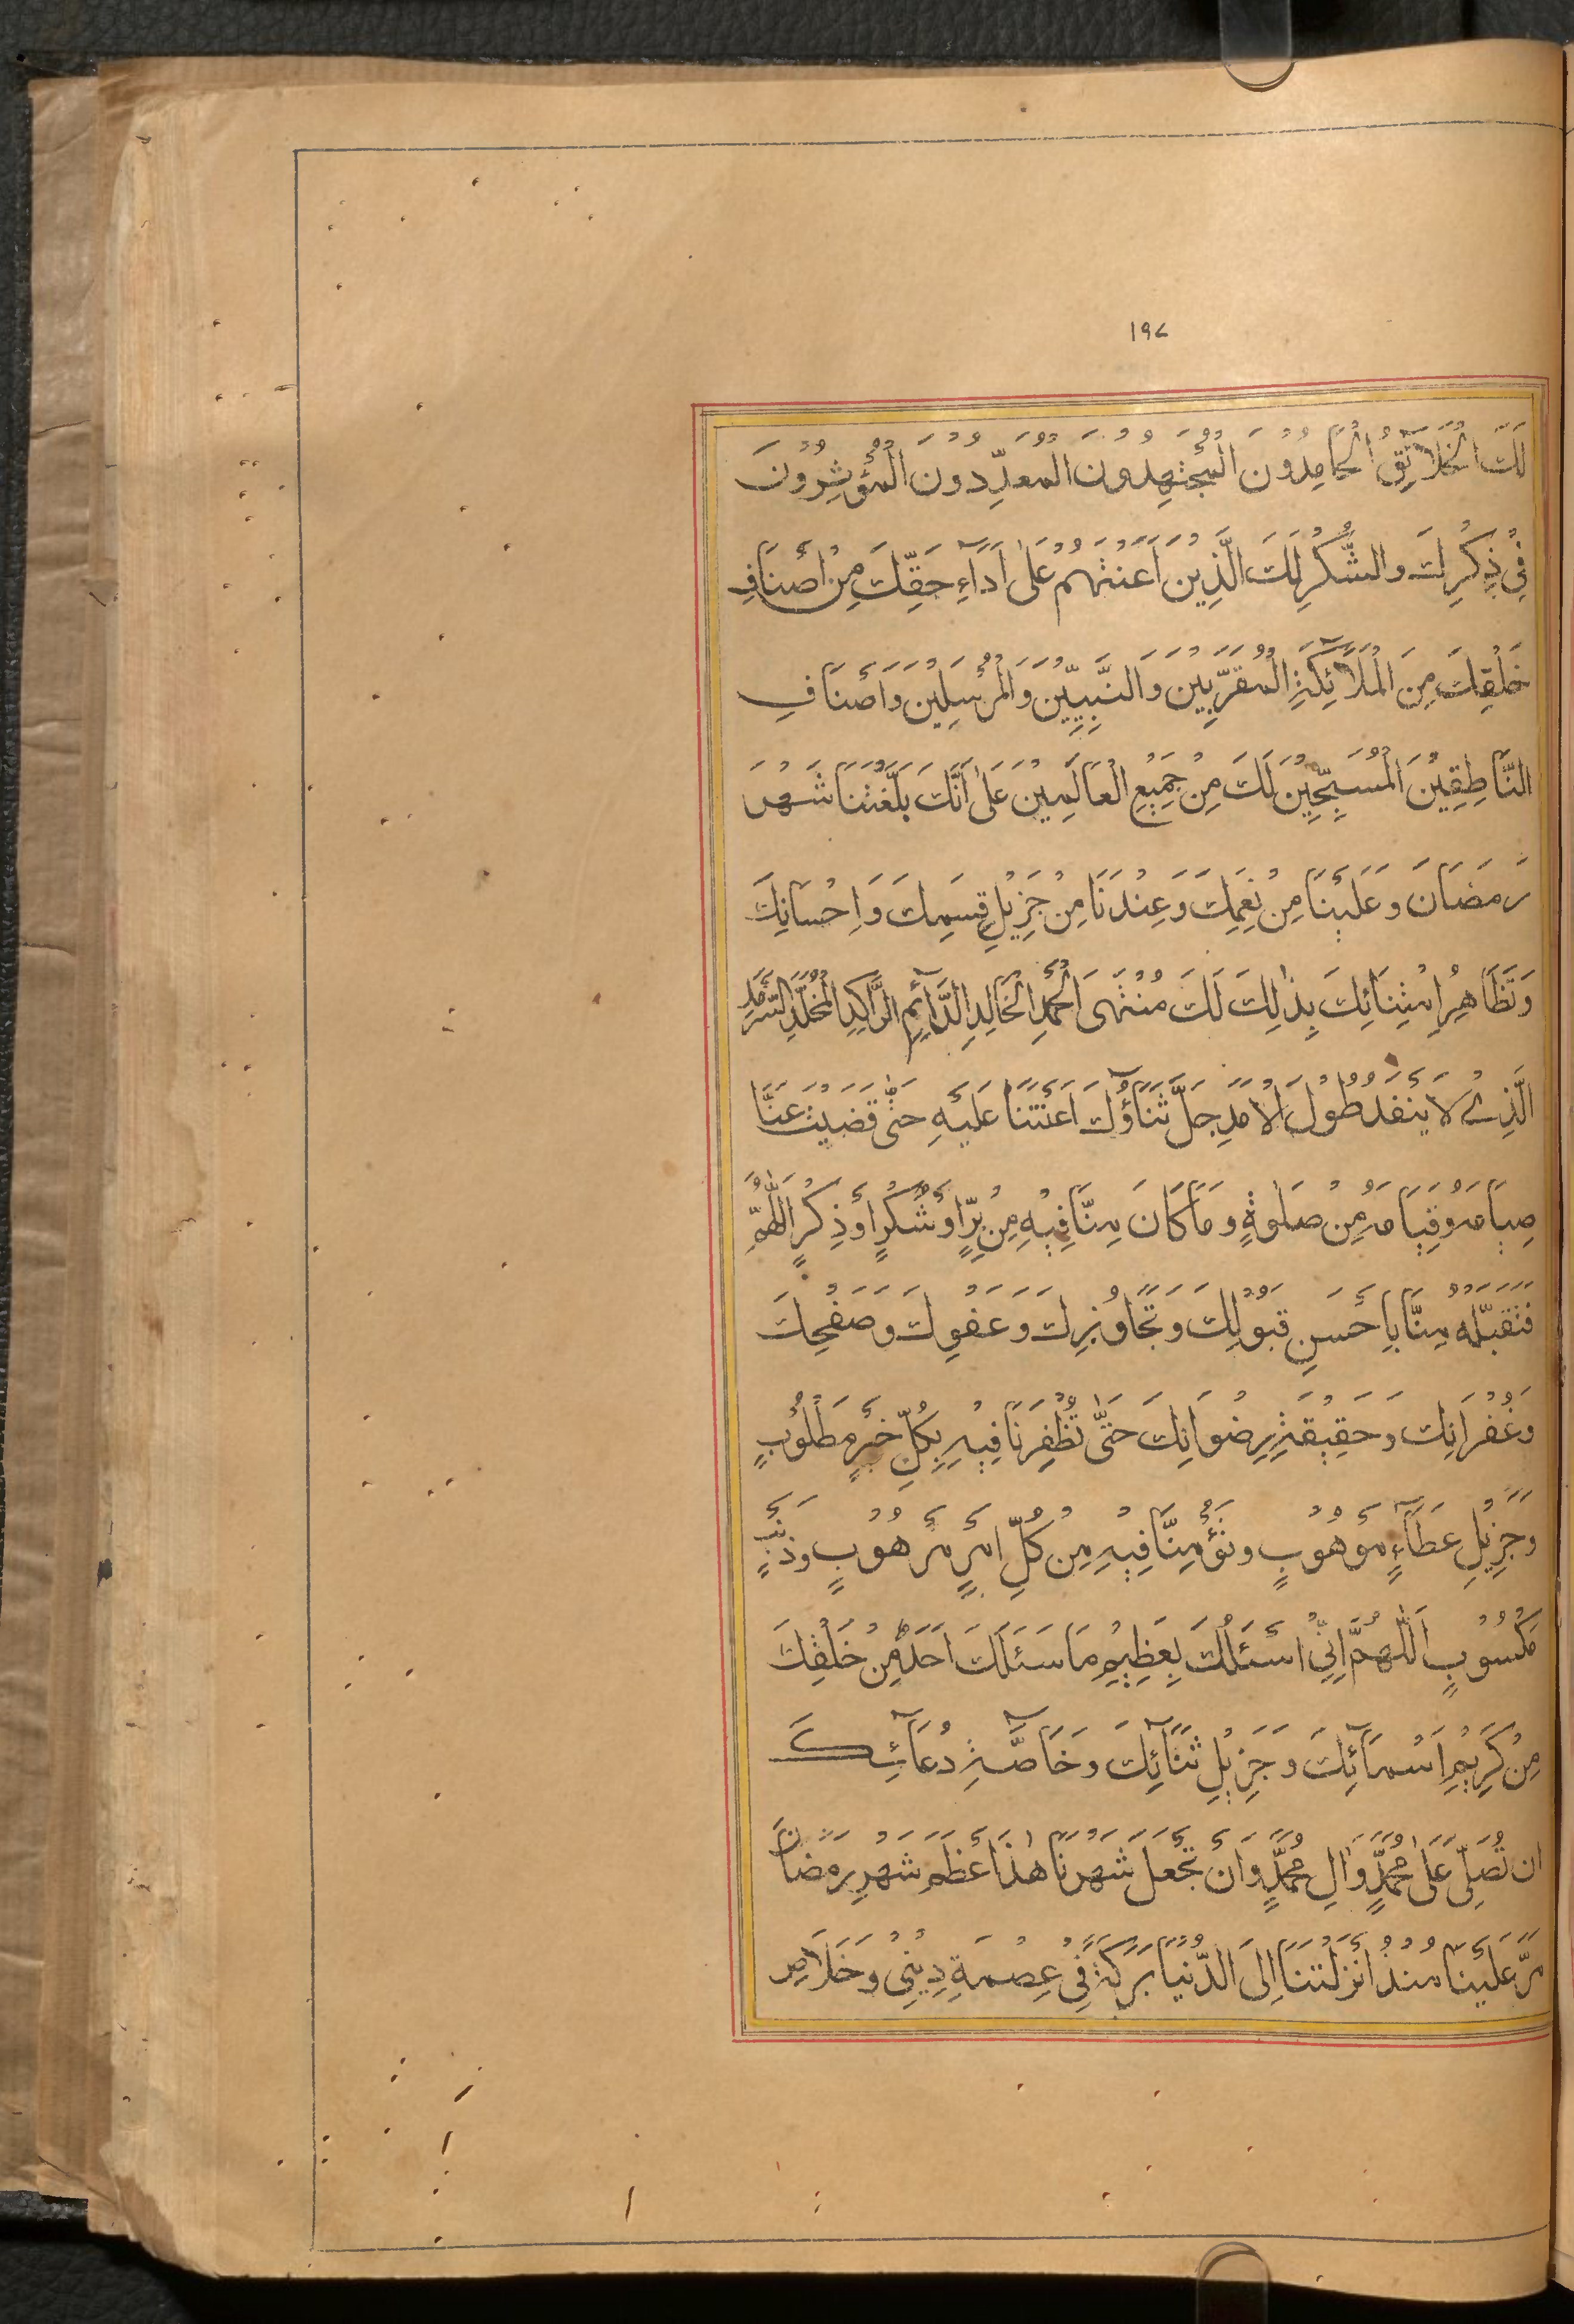 ١٩٧
لَكَ الْخَلَآئِقُ الْحَامِدُوْنَ الْمُجْتَهِدُوْنَ الْمُعَدِّدُوْنَ الْمُؤْثِرُوْنَ
فِيْ ذِكْرِكَ وَالشُّكْرِ لَكَ الَّذِيْنَ اَعَنْتَهُمْ عَلٰى اَدَآءِ حَقِّكَ مِنْ اَصْنَافِ
خَلْقِكَ مِنَ الْمَلَآئِكَةِ الْمُقَرَّبِيْنَ وَالنَّبِيِّيْنَ وَالْمُرْسَلِيْنَ وَاَصْنَافِ
النَّاطِقِيْنَ الْمُسَبِّحِيْنَ لَكَ مِنْ جَمِيْعِ الْعَالَمِيْنَ عَلٰى اَنَّكَ بَلَّغْتَنَا شَهْرَ
رَمَضَانَ وَعَلَيْنَا مِنْ نِعَمِكَ وَعِنْدَنَا مِنْ جَزِيْلِ قِسَمِكَ وَاِحْسَانِكَ
وَتَظَاهُرِ امْتِنَانِكَ بِذٰلِكَ لَكَ مُنْتَهَى الْحَمْدِ الْخَالِدِ الدَّآئِمِ الرَّاكِدِ الْمُخَلَّدِ السَّرْمَدِ
الَّذِيْ لَا يَنْفَدُ طُوْلَ الْاَمَدِ جَلَّ ثَنَاؤُكَ اَعَنْتَنَا عَلَيْهِ حَتّٰى قَضَيْتَ عَنَّا
صِيَامَهُ وَقِيَامَهُ مِنْ صَلٰوةٍ وَمَا كَانَ مِنَّا فِيْهِ مِنْ بِرٍّ اَوْ شُكْرٍ اَوْ ذِكْرٍ اَللّٰهُمَّ
فَتَقَبَّلْهُ مِنَّا بِاَحْسَنِ قَبُوْلِكَ وَتَجَاوُزِكَ وَعَفْوِكَ وَصَفْحِكَ
وَغُفْرَانِكَ وَحَقِيْقَةِ رِضْوَانِكَ حَتّٰى تُظْفِرَنَا فِيْهِ بِكُلِّ خَيْرٍ مَطْلُوْبٍ
وَجَزِيْلِ عَطَآءٍ مَوْهُوْبٍ وَتُؤْمِنَّا فِيْهِ مِنْ كُلِّ اَمْرٍ مَرْهُوْبٍ وَذَنْبٍ
مَكْسُوْبٍ اَللّٰهُمَّ اِنِّيْ اَسْئَلُكَ بِعَظِيْمِ مَا سَئَلَكَ اَحَدٌ مِنْ خَلْقِكَ
مِنْ كَرِيْمِ اَسْمَآئِكَ وَجَزِيْلِ ثَنَآئِكَ وَخَاصَّةِ دُعَآئِكَ
اَنْ تُصَلِّيَ عَلٰى مُحَمَّدٍ وَّاٰلِ مُحَمَّدٍ وَاَنْ تَجْعَلَ شَهْرَنَا هٰذَا اَعْظَمَ شَهْرِ رَمَضَانَ
مَرَّ عَلَيْنَا مُنْذُ اَنْزَلْتَنَا اِلَى الدُّنْيَا بَرَكَةً فِيْ عِصْمَةِ دِيْنِيْ وَخَلَاصِ